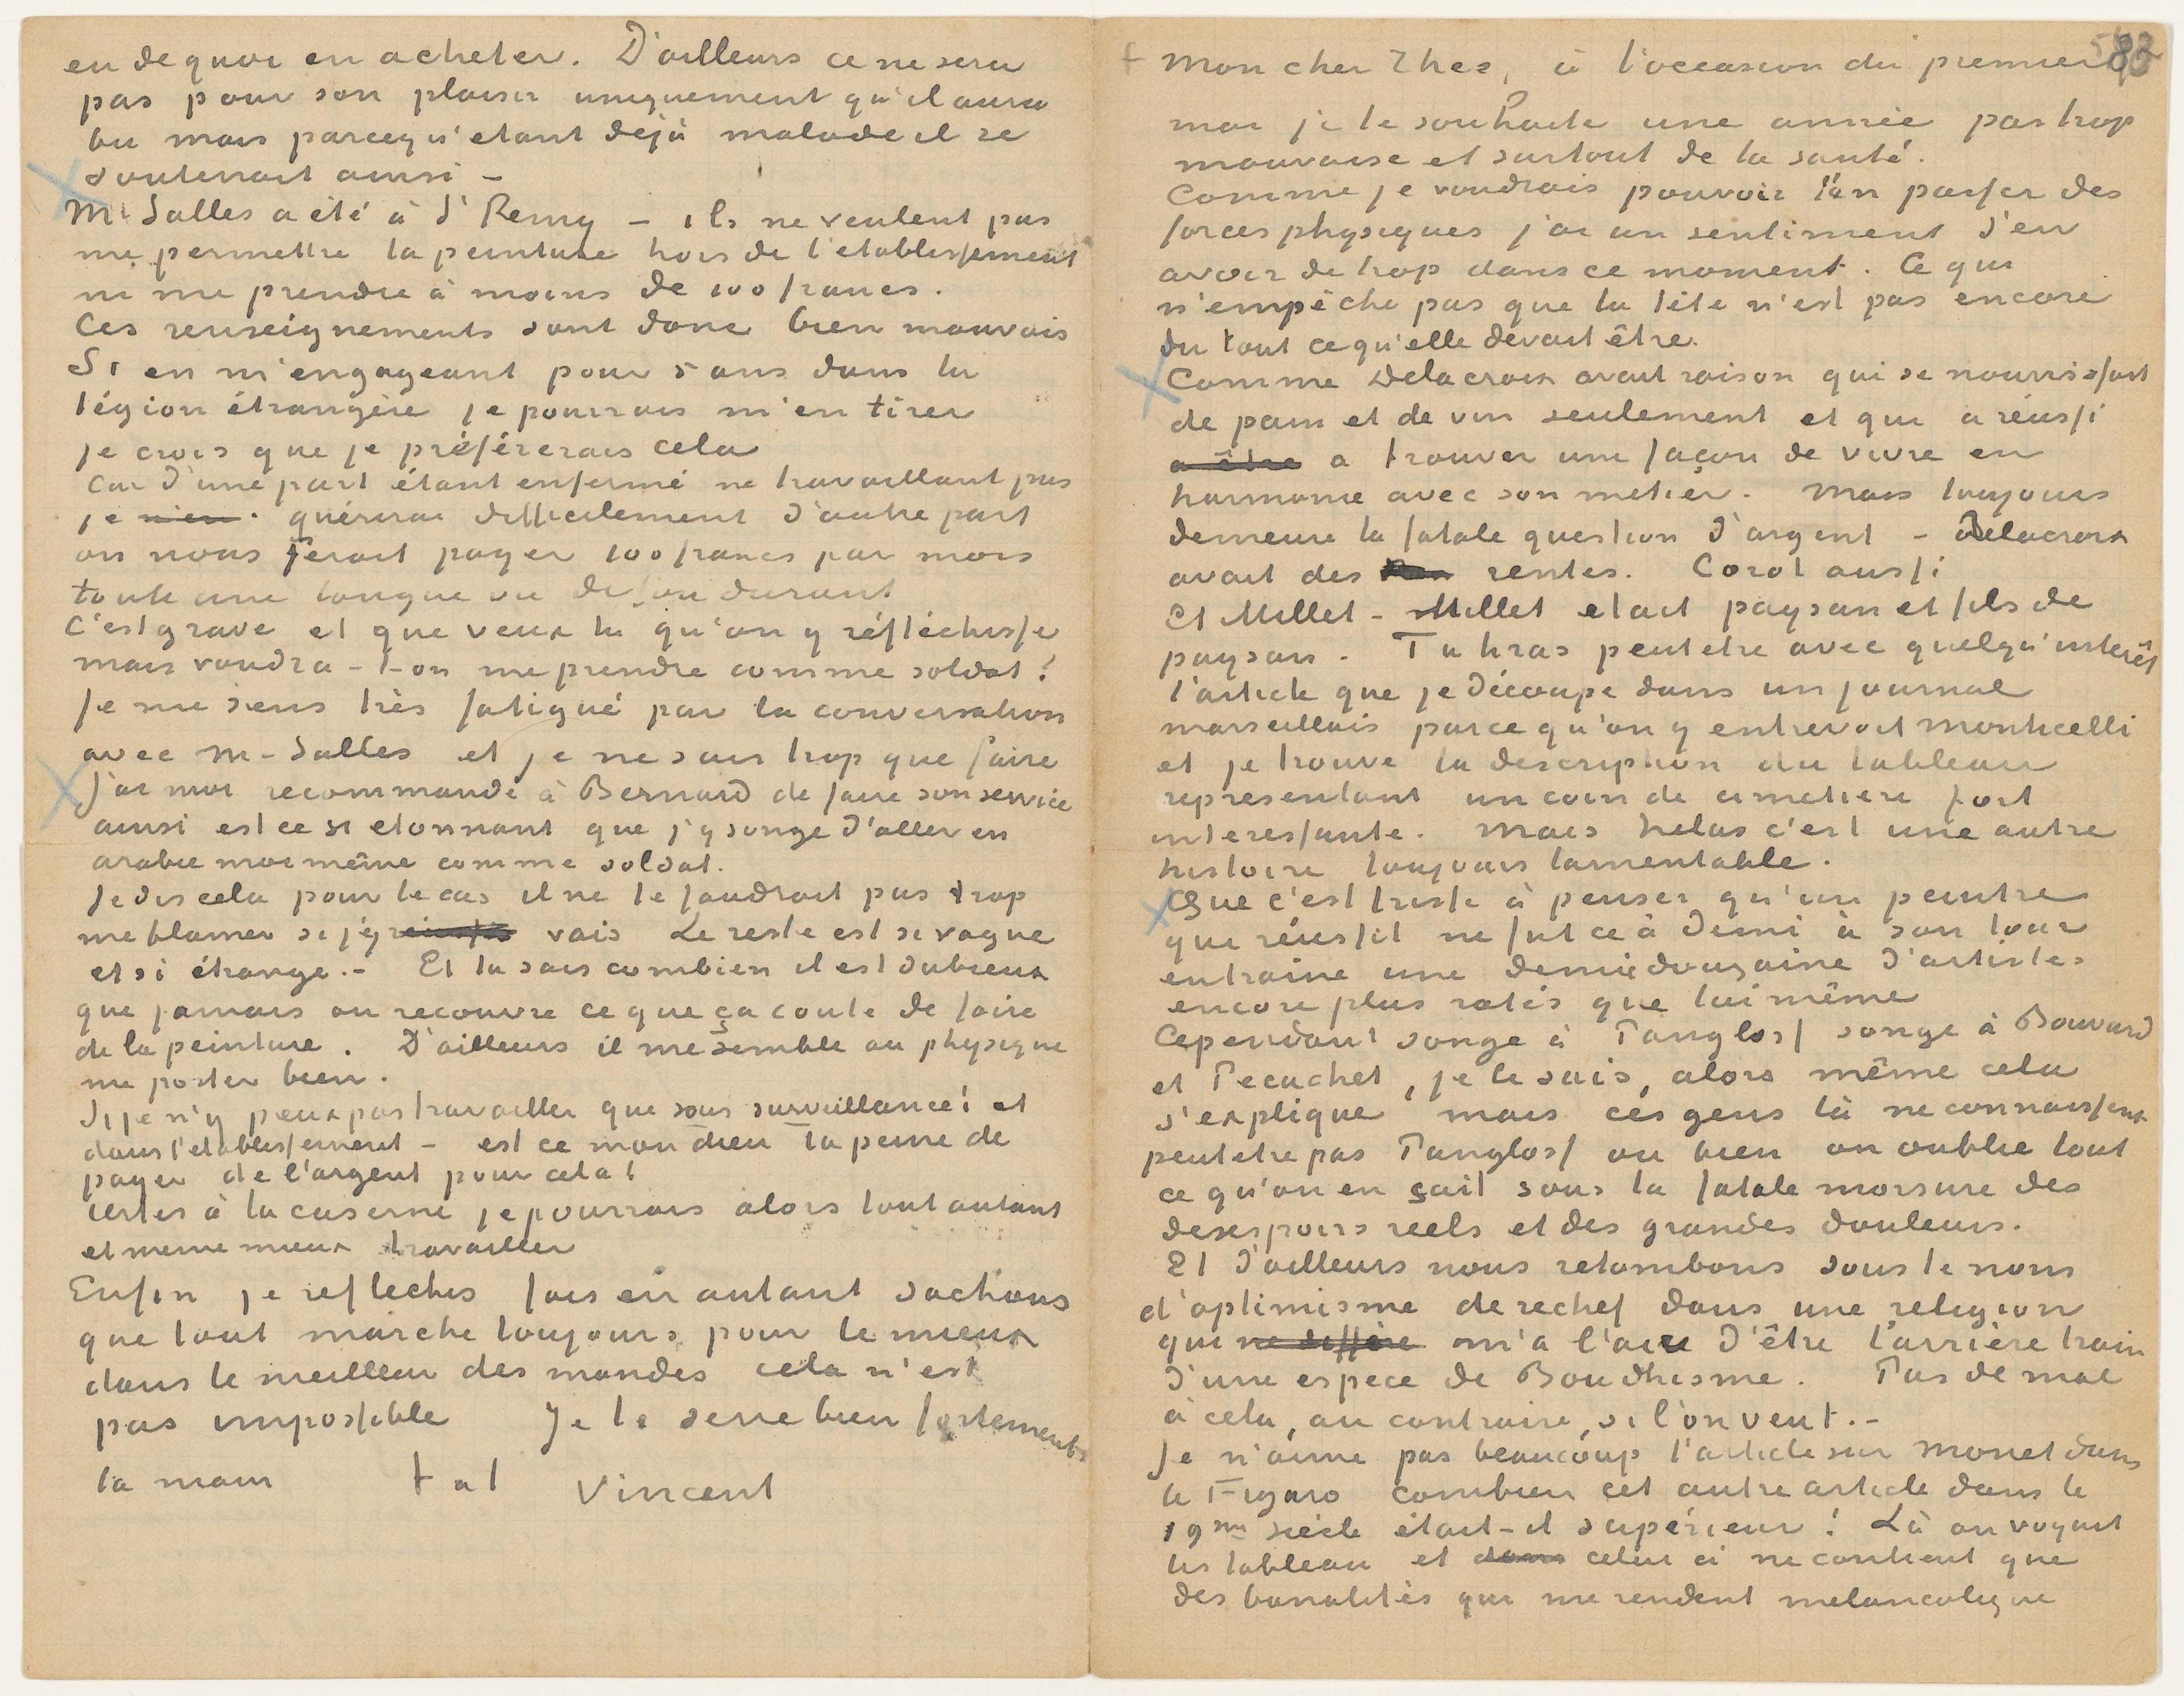 en de quoi en acheter. D'ailleurs ce ne sera
pas pour son plaisir uniquement qu'il aura
bu mais parcequ'etant déjà malade il se
soutenait ainsi –
Mr Salles a été à St Remy – ils ne veulent pas
me permettre la peinture hors de l'etablissement
ni me prendre à moins de 100 francs.
Ces renseignements sont donc bien mauvais
Si en m'engageant pour 5 ans dans la
légion étrangère je pourrais m'en tirer
je crois que je préférerais cela
Car d'une part étant enfermé ne travaillant pas
je rien guérirai difficilement d'autre part
on nous ferait payer 100 francs par mois
toute une longue vie de fou durant
C'est grave et que veux tu qu'on y réfléchisse
mais voudra-t-on me prendre comme soldat?
Je me sens très fatigué par la conversation
avec M– Salles et je ne sais trop que faire
J'ai moi recommandé à Bernard de faire son service
ainsi est ce si etonnant que j'y songe d'aller en
arabie moi même comme soldat.
Je dis cela pour le cas il ne te faudrait pas trop
me blamer si j'y vais Le reste est si vague
et si étrange.– Et tu sais combien il est dubieux
que jamais on recouvre ce que ça coute de faire
de la peinture. D'ailleurs il me semble au physique
me porter bien.
Si je n'y peux pas travailler que sous surveillance! et
dans l'etablissement – est ce mon dieu la peine de
payer de l'argent pour cela!
certes à la caserne je pourrais alors tout autant
et meme mieux travailler
Enfin je reflechis fais en autant sachons
que tout marche toujours pour le mieux
dans le meilleur des mondes cela n'est
pas impossible Je te serre bien fortement
la main t. à t. Vincent
Mon cher Theo, à l'occasion du premier
mai je te souhaite une année pas trop
mauvaise et surtout de la santé.
Comme je voudrais pouvoir t'en passer des
forces physiques j'ai un sentiment d'en
avoir de trop dans ce moment. Ce qui
n'empêche pas que la tête n'est pas encore
du tout ce qu'elle devait être.
Comme Delacroix avait raison qui se nourrissait
de pain et de vin seulement et qui a réussi
a être a trouver une façon de vivre en
harmonie avec son metier. Mais toujours
demeure la fatale question d'argent – Delacroix
avait des rentes. Corot aussi
Et Millet – Millet etait paysan et fils de
paysan. Tu liras peutetre avec quelqu'interêt
l'article que je découpe dans un journal
marseillais parce qu'on y entrevoit Monticelli
et je trouve la description du tableau
representant un coin de cimetiere fort
interessante. Mais helas c'est une autre
histoire toujours lamentable.
Que c'est triste à penser qu'un peintre
qui réussit ne fut ce à demi à son tour
entraine une demie douzaine d'artistes
encore plus ratés que lui même
Cependant songe à Pangloss songe à Bouvard
et Pecuchet, je le sais, alors même cela
s'explique mais cés gens là ne connaissent
peutetre pas Pangloss ou bien on oublie tout
ce qu'on en sait sous la fatale morsure des
desespoirs reels et des grandes douleurs.
Et d'ailleurs nous retombons sous le nom
d'optimisme derechef dans une religion
qui ne diffère m'a l'aire d'être l'arrière train
d'une espece de Boudhisme. Pas de mal
à cela, au contraire, si l'on veut.–
Je n'aime pas beaucoup l'article sur Monet dans
le Figaro combien cet autre article dans le
19me siècle était-il supérieur! Là on voyait
les tableau et dans celui ci ne contient que
des banalités qui me rendent melancolique